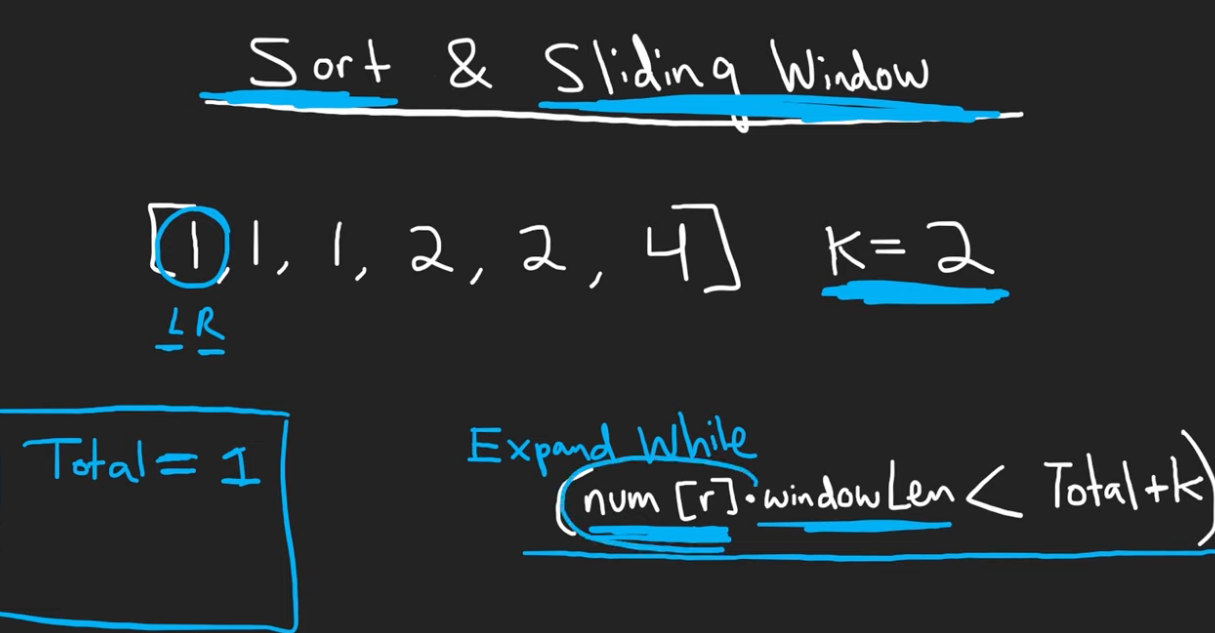 Sort & Sliding Window
[1, 1, 1, 2, 2, 4] K=2
L R
Total = 1
Expand While
(num [r] · windowLen < Total+k)